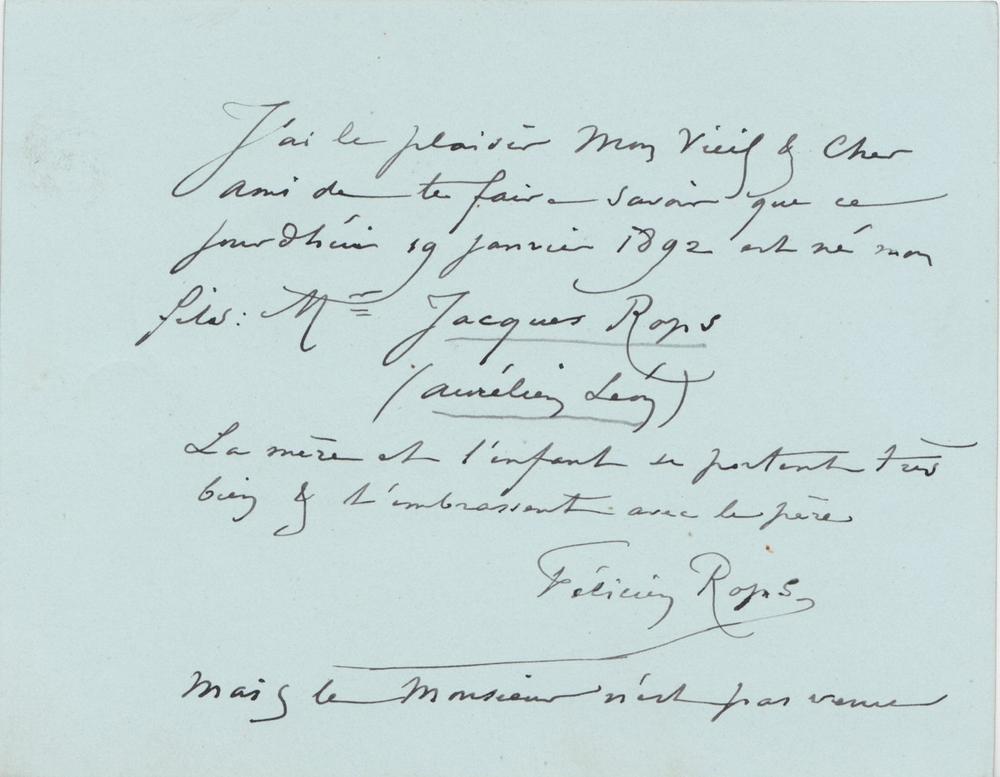 J'ai le plaisir Mon Vieil & Cher
ami de te faire savoir que ce
jourdhui 19 janvier 1892 est né mon
fils: Mr Jacques Rops
(Aurélien Léon)
La mère et l'enfant se portent très
bien & t'embrassent avec le père
Félicien Rops
Mais le Monsieur n'est pas venu